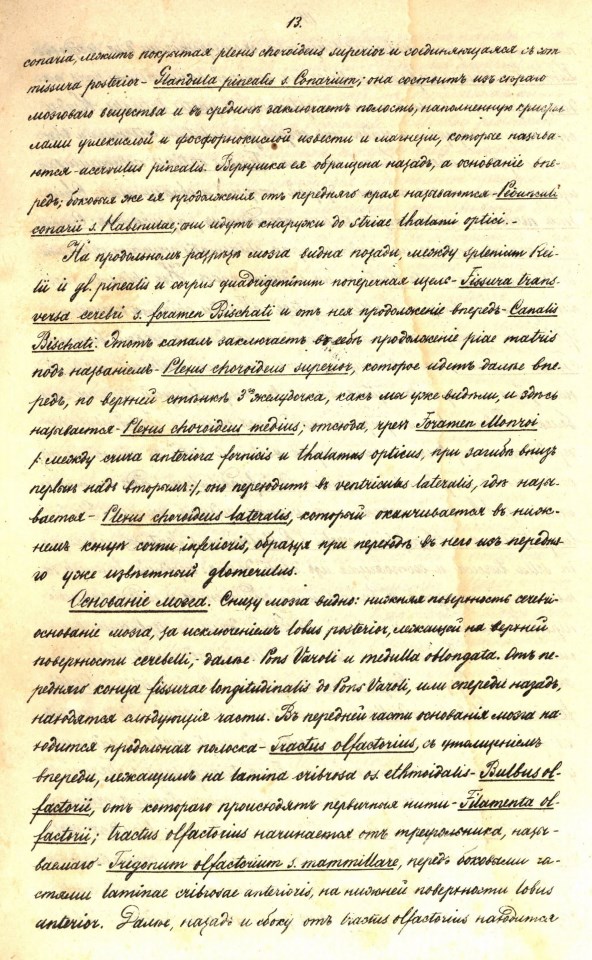 13.
conaria, лежитъ покрытая plexus choroideus superior и соединяющаяся съ com-
missura posterior - Glandula pinealis s. Conarium; она состоитъ изъ сѣраго
мозговаго вещества и въ срединѣ заключаетъ полость, наполненную кристал-
лами углекислой и фосфорнокислой извести и магнезіи, которые называ-
ются - acervulus pinealis. Верхушка ея обращена назадъ, а основаніе впе-
редъ; боковыя же ея продолженія отъ передняго края называются - Pedunculi
conarii s. Habenulae; они идутъ кнаружи до striae thalami optici. -
На продольномъ разрѣзѣ мозга видна позади, между splenium Rei-
lii и gl. pinealis и corpus quadrigeminum поперечная щель - Fissura trans-
versa cerebri s. foramen Bischati и отъ нея продолженіе впередъ - Canalis
Bischati. Этотъ каналъ заключаетъ въ себѣ продолженіе piae matris
подъ названіемъ - Plexus choroideus superior, которое идетъ далѣе впе-
редъ, по верхней стѣнкѣ 3го желудочка, какъ мы уже видѣли, и здѣсь
называется - Plexus choroideus medius; отсюда, чрезъ Foramen Monroi
/: между crura anteriora fornicis и thalamus opticus, при загибѣ внизъ
первыхъ надъ вторымъ :/, оно переходитъ въ ventriculus lateralis, гдѣ назы-
вается - Plexus choroideus lateralis, который оканчивается въ ниж-
немъ концѣ cornu inferioris, образуя при переходѣ въ него изъ передня-
го уже извѣстный glomerulus.
Основаніе мозга. Снизу мозга видно: нижняя поверхность cerebri -
основаніе мозга, за исключеніемъ lobus posterior, лежащей на верхней
поверхности cerebelli, - далѣе Pons Varoli и medulla oblongata. Отъ пе-
редняго конца fissurae longitudinalis до Pons Varoli, или спереди назадъ,
находятся слѣдующія части. Въ передней части основанія мозга на-
ходится продольная полоска - Tractus olfactorius, съ утолщеніемъ
впереди, лежащимъ на lamina cribrosa os. ethmoidalis - Bulbus ol-
factorii, отъ котораго происходятъ первичныя нити - Filamenta ol-
factorii; tractus olfactorius начинается отъ треугольника, назы-
ваемаго - Trigonum olfactorium s. mammillare, передъ боковыми ча-
стями laminae cribrosae anterioris, на нижней поверхности lobus
anterior. Далѣе, назадъ и сбоку отъ tractus olfactorius находится